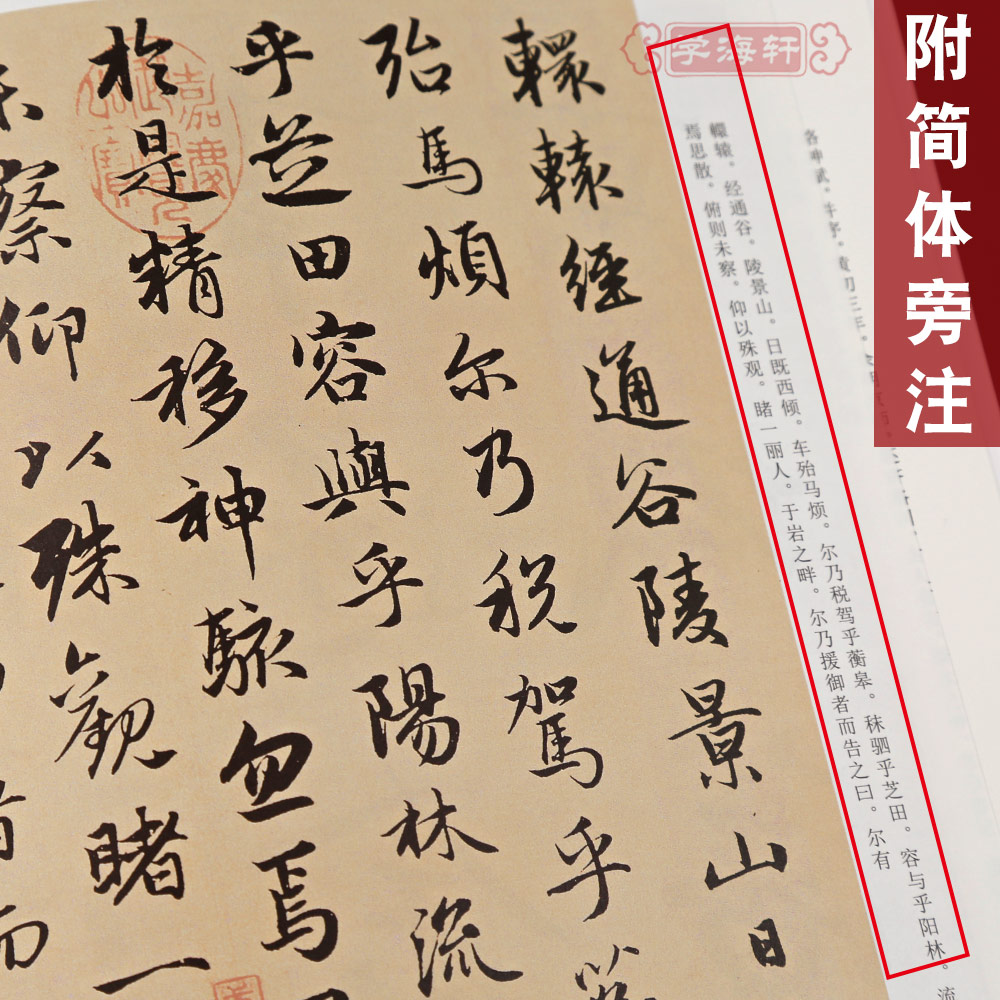 附简体旁注
学海轩
神赋。并序。黄初三年。
轘辕。经通谷。陵景山。日既西倾。车殆马烦。尔乃税驾乎蘅皋。秣驷乎芝田。容与乎阳林。流
焉思散。俯则未察。仰以殊观。睹一丽人。于岩之畔。尔乃援御者而告之曰。尔有
轘轅經通谷陵景山日
殆馬煩尔乃税駕乎
乎芝田容與乎陽林流
於是精移神駭忽焉
未察仰以殊觀睹一
者而
嘉慶